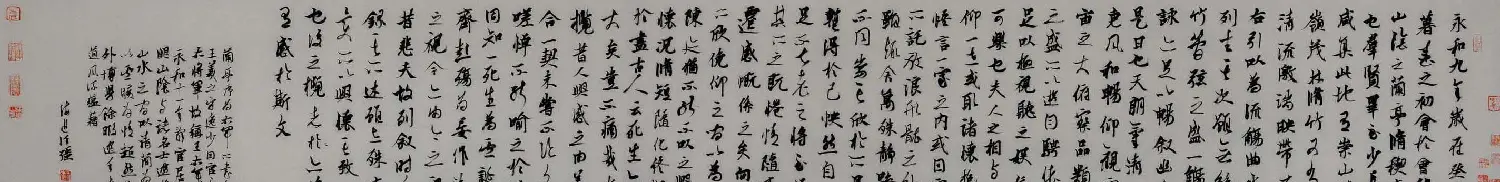 永和九年歲在癸
暮春之初會於會
山陰之蘭亭脩稧
也羣賢畢至少長
咸集此地有崇山
嶺茂林脩竹又有
清流激湍映帶
右引以為流觴曲水
列坐其次雖無
竹管弦之盛一觴
詠亦足以暢叙幽
是日也天朗氣清
惠風和暢仰觀
宙之大俯察品類
之盛所以遊目騁
足以極視聽之娛
可樂也夫人之相與
仰一世或取諸懷抱
悟言一室之內或因
所託放浪形骸之外
趣舍萬殊靜躁
不同當其欣於所
暫得於己快然自
足不知老之將至
其所之既惓情隨
遷感慨係之矣向
所欣俛仰之間以為
陳迹猶不能不以之興
懷況脩短隨化終
於盡古人云死生亦
大矣豈不痛哉
攬昔人興感之由
合一契未嘗不臨
嗟悼不能喻之於
固知一死生為虛誕
齊彭殤為妄作
之視今亦由今之視
昔悲夫故列叙時
錄其所述雖世殊
異所以興懷其致
也後之攬者亦將
有感於斯文